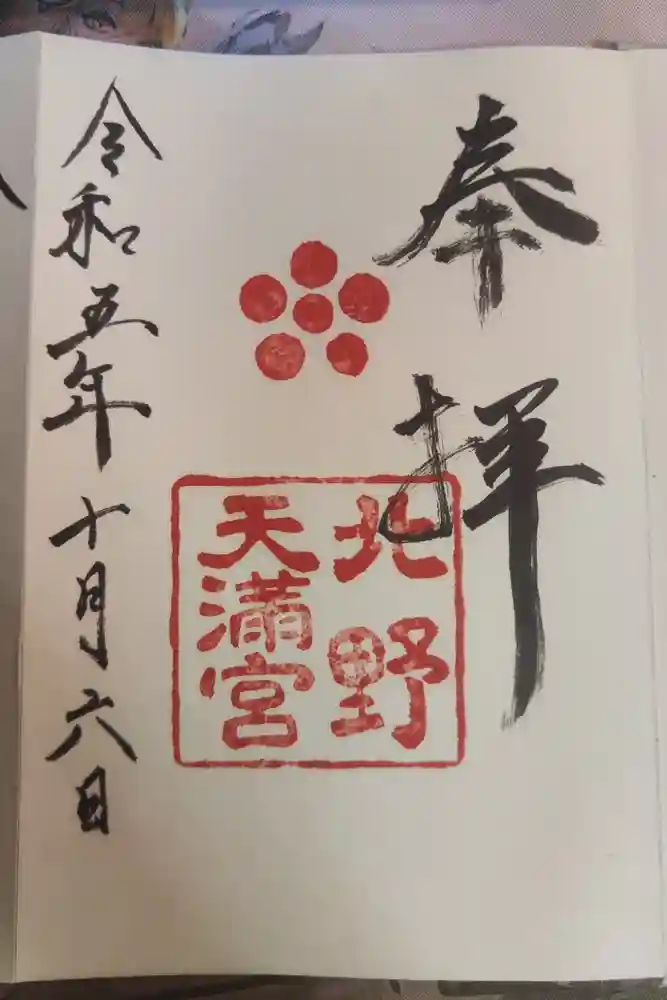 奉拝
北野
天満宮
令和五年十月六日